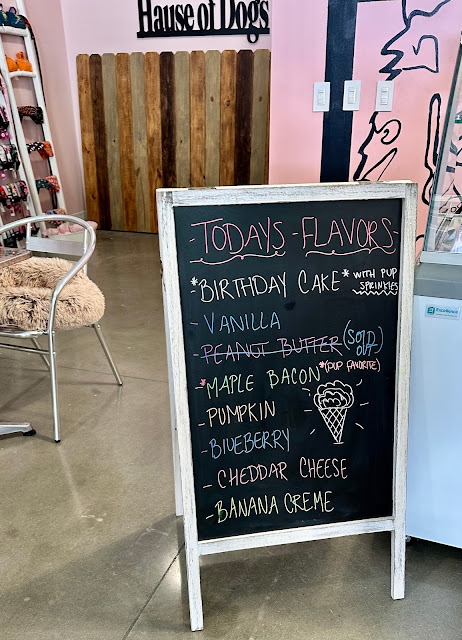 Hause of Dogs
-TODAYS-FLAVORS-
*BIRTHDAY CAKE* WITH PUP SPRINKLES
-VANILLA
-PEANUT BUTTER (SOLD OUT)
*MAPLE BACON *(PUP FAVORITE)
-PUMPKIN
-BLUEBERRY
-CHEDDAR CHEESE
-BANANA CREME
Excellence